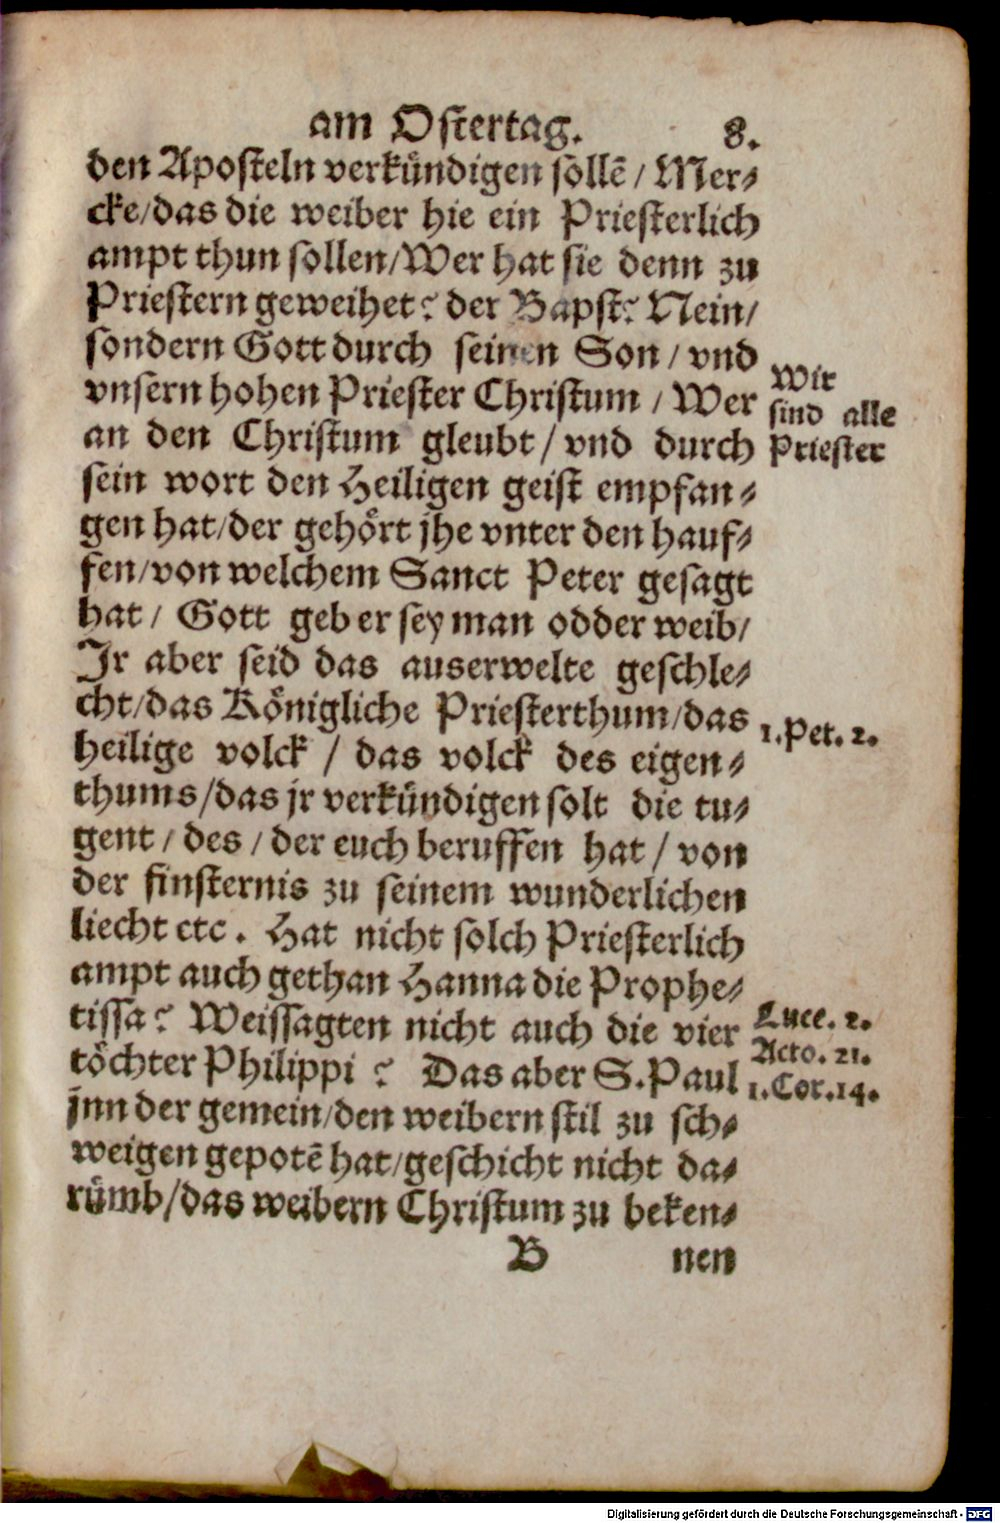 am Ostertag. 8.
den Aposteln verkündigen sollē / Mer⸗
cke/das die weiber hie ein Priesterlich
ampt thun sollen/Wer hat sie denn zu
Priestern geweihet? der Bapst? Nein/
sondern Gott durch seinen Son / vnd
vnsern hohen Priester Christum / Wer
an den Christum gleubt / vnd durch
sein wort den Heiligen geist empfan⸗
gen hat/der gehört jhe vnter den hauf⸗
fen/von welchem Sanct Peter gesagt
hat / Gott geb er sey man odder weib/
Jr aber seid das auserwelte geschle⸗
cht/das Königliche Priesterthum/das
heilige volck / das volck des eigen⸗
thums/das jr verkündigen solt die tu⸗
gent / des / der euch beruffen hat / von
der finsternis zu seinem wunderlichen
liecht etc. Hat nicht solch Priesterlich
ampt auch gethan Hanna die Prophe⸗
tissa? Weissagten nicht auch die vier
töchter Philippi ? Das aber S.Paul
jnn der gemein/den weibern stil zu sch⸗
weigen gepotē hat/geschicht nicht da⸗
rümb/das weibern Christum zu beken⸗
B nen
Wir
sind alle
Priester
1.Pet. 2.
Luce. 2.
Acto. 21.
1.Cor.14.
Digitalisierung gefördert durch die Deutsche Forschungsgemeinschaft - DFG